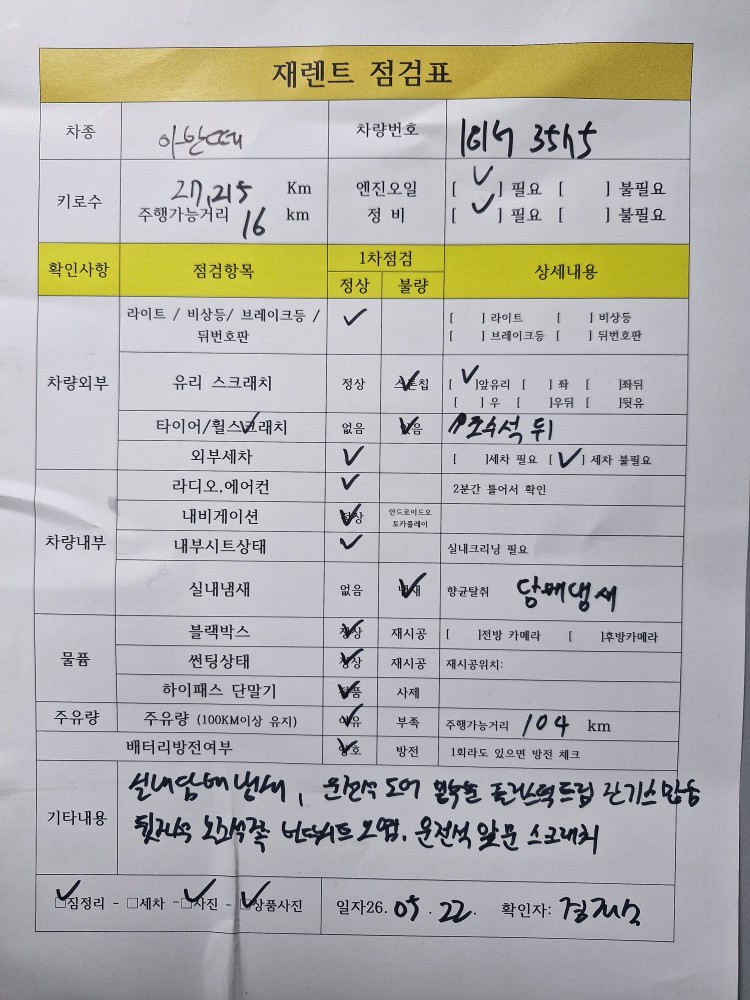 재렌트 점검표
차종 아반떼 차량번호
키로수 27,215 Km 엔진오일 [ ✓ ] 필요 [ ] 불필요
주행가능거리 16 km 정 비 [ ✓ ] 필요 [ ] 불필요
확인사항 점검항목 1차점검 상세내용
정상 불량
차량외부 라이트 / 비상등/ 브레이크등 / ✓ [ ] 라이트 [ ] 비상등
뒤번호판 [ ] 브레이크등 [ ] 뒤번호판
유리 스크래치 정상 스톤칩 ✓ [ ✓ ]앞유리 [ ] 좌 [ ]좌뒤
[ ] 우 [ ]우뒤 [ ]뒷유
타이어/휠스크래치 ✓ 없음 있음 ✓ 조수석 뒤
외부세차 ✓ [ ]세차 필요 [ ✓ ] 세차 불필요
차량내부 라디오,에어컨 ✓ 2분간 틀어서 확인
내비게이션 정상 ✓ 안드로이드오
토카플레이
내부시트상태 ✓ 실내크리닝 필요
실내냄새 없음 냄새 ✓ 향균탈취 담배냄새
물품 블랙박스 정상 ✓ 재시공 [ ]전방 카메라 [ ]후방카메라
썬팅상태 정상 ✓ 재시공 재시공위치:
하이패스 단말기 ✓ 사제
주유량 주유량 (100KM이상 유지) 여유 ✓ 부족 주행가능거리 104 km
배터리방전여부 양호 ✓ 방전 1회라도 있으면 방전 체크
기타내용 실내담배냄새, 운전석 도어 플라스틱트림 잔기스많음
오염. 운전석 앞문 스크래치
✓ □짐정리 - □세차 - ✓ □사진 - ✓ □상품사진 일자26. 05 . 22. 확인자: